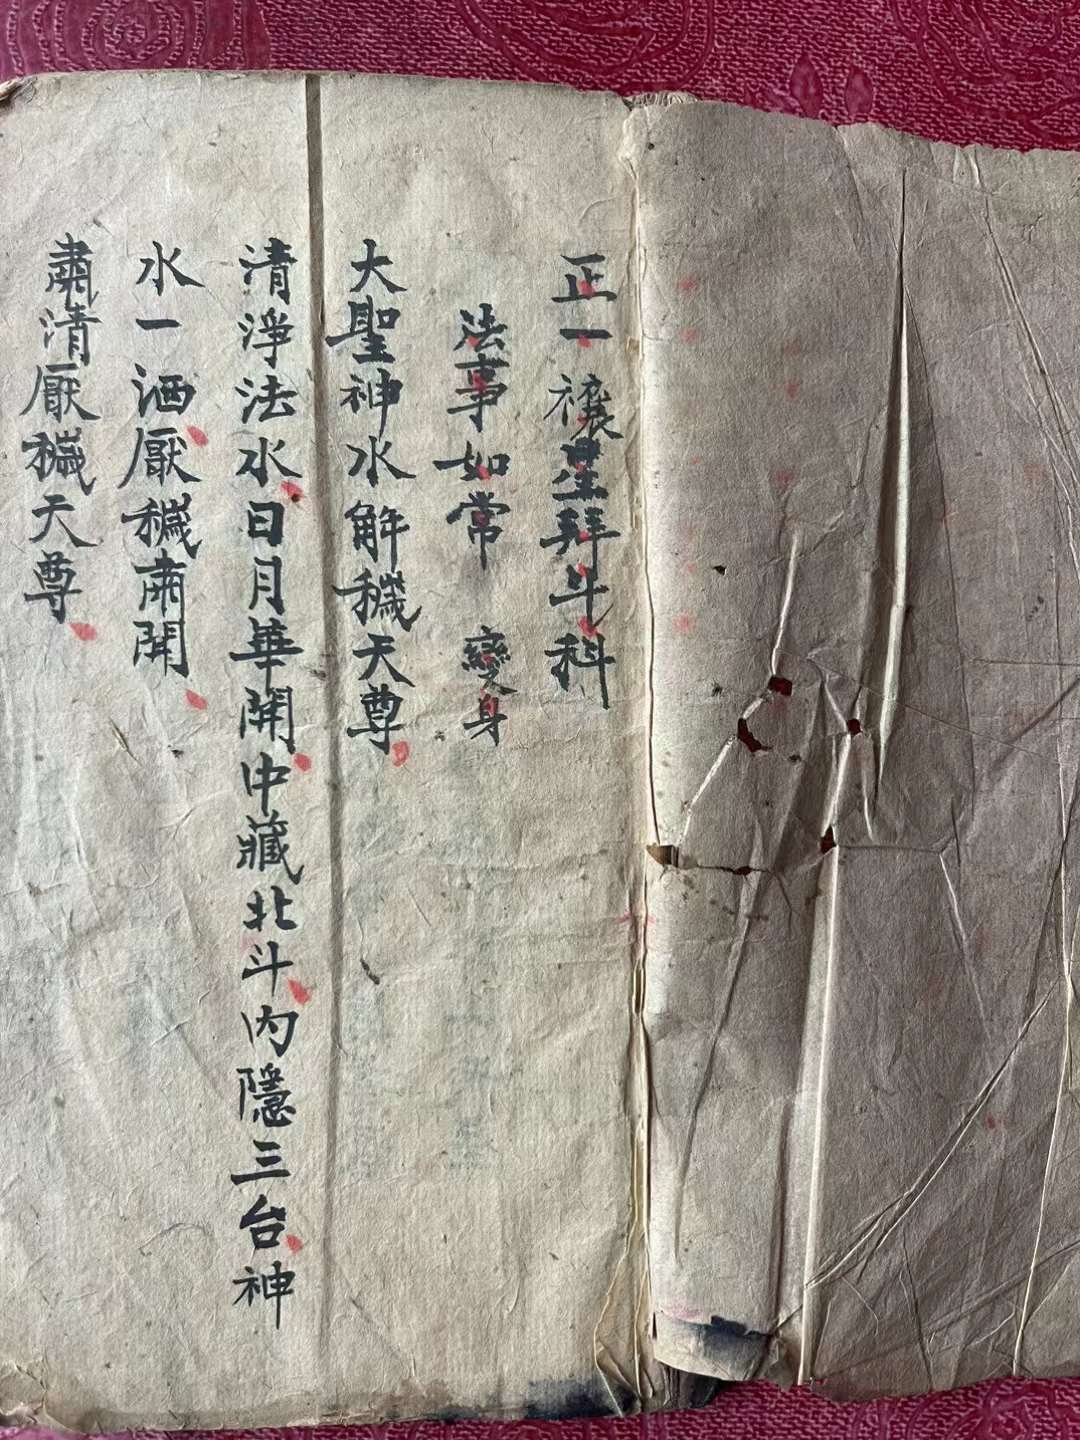 正一禳星拜斗科
法事如常 變身
大聖神水解穢天尊
清淨法水日月華開中藏北斗內隱三台神
水一洒厭穢肅開
肅清厭穢天尊